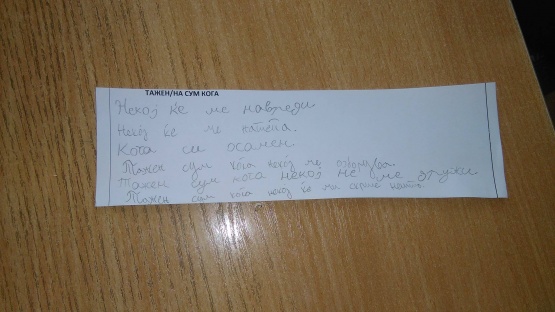 ТАЖЕН/НА СУМ КОГА
Некој ќе ме навреди
Некој ќе ме
Кога си осамен.
Тажен сум кога некој ме озборува.
Тажен сум кога некој не ме
Тажен сум кога некој ќе ми